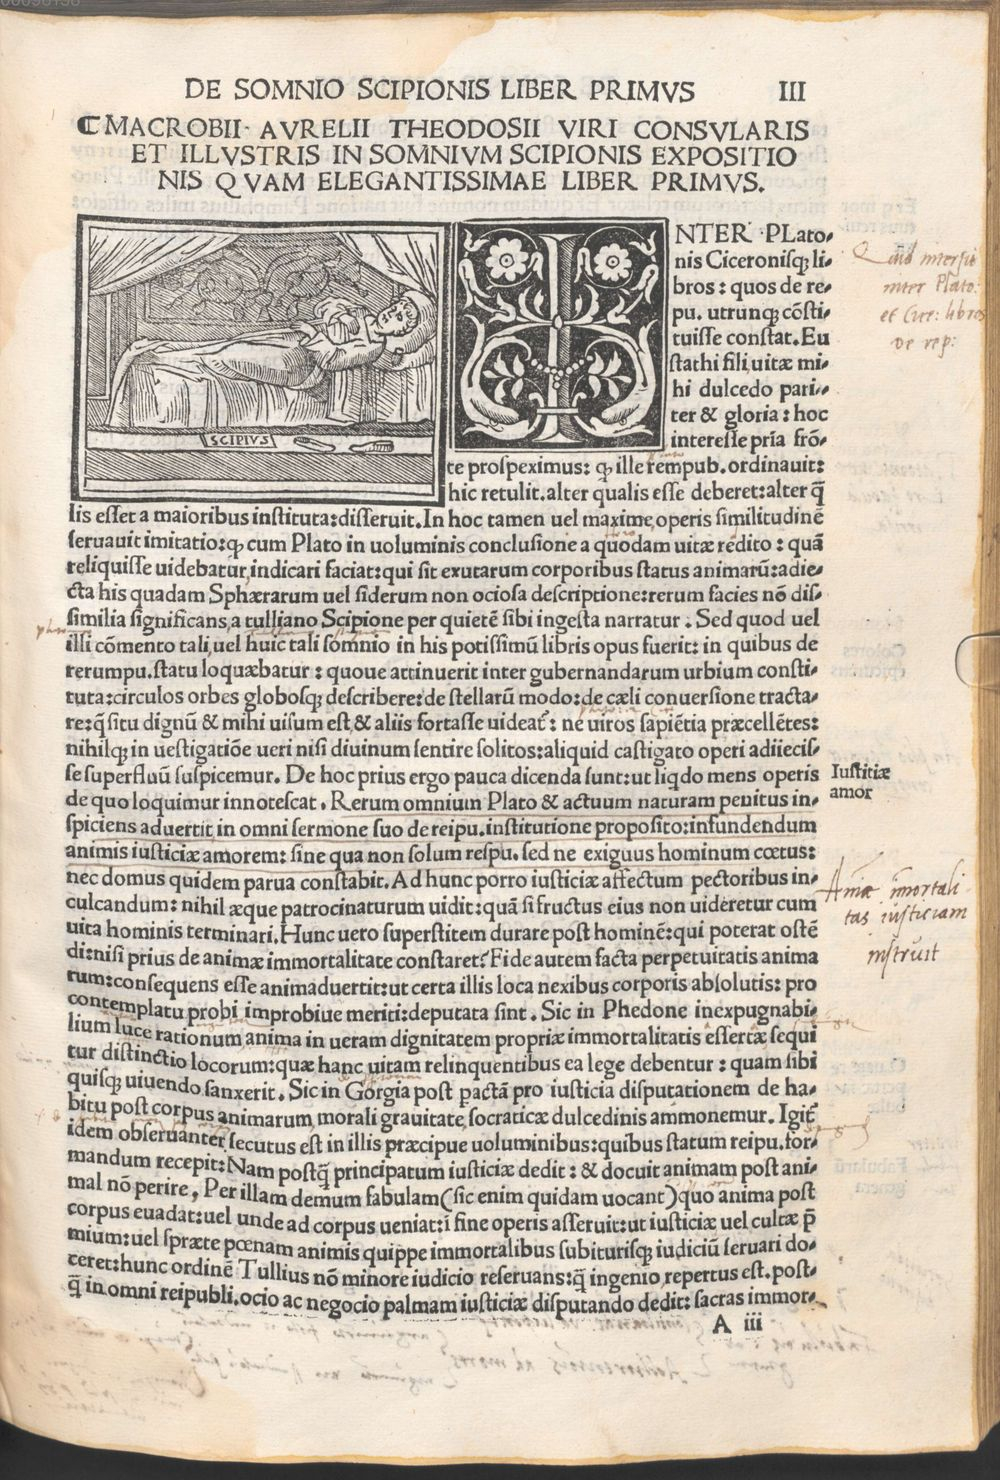 DE SOMNIO SCIPIONIS LIBER PRIMVS III
MACROBII· AVRELII THEODOSII VIRI CONSVLARIS
ET ILLVSTRIS IN SOMNIVM SCIPIONIS EXPOSITIO
NIS QVAM ELEGANTISSIMAE LIBER PRIMVS.
SCIPIVS
I
NTER PLato⸗
nis Ciceronisq; li⸗
bros : quos de re⸗
pu. utrunq; cõsti⸗
tuisse constat. Eu
stathi fili, uitæ mi⸗
hi dulcedo pari⸗
ter & gloria : hoc
interesse pria frõ⸗
te prospeximus: ꝙ ille rempub. ordinauit:
hic retulit. alter qualis esse deberet: alter q̃
lis esset a maioribus instituta: disseruit. In hoc tamen uel maxime, operis similitudinẽ
seruauit imitatio: ꝙ cum Plato in uoluminis conclusione a quodam uitæ redito : quã
reliquisse uidebatur, indicari faciat: qui sit exutarum corporibus status animarũ: adie⸗
cta his quadam Sphærarum uel siderum non ociosa descriptione: rerum facies nõ dis⸗
similia significans, a tulliano Scipione per quietẽ sibi ingesta narratur . Sed quod uel
illi cõmento tali, uel huic tali somnio in his potissimũ libris opus fuerit: in quibus de
rerumpu. statu loquæbatur : quoue attinuerit inter gubernandarum urbium consti⸗
tuta: circulos orbes globosq; describere: de stellarũ modo: de cæli conuersione tracta⸗
re: q̃situ dignũ & mihi uisum est, & aliis fortasse uideat̃ : ne uiros sapiẽtia præcellẽtes:
nihilq; in uestigatiõe ueri nisi diuinum sentire solitos: aliquid castigato operi adiiecis⸗
se superfluũ suspicemur. De hoc prius ergo pauca dicenda sunt: ut liqdo mens operis
de quo loquimur innotescat . Rerum omnium Plato & actuum naturam penitus in⸗
spiciens aduertit, in omni sermone suo de reipu. institutione proposito: infundendum
animis iusticiæ amorem: sine qua non solum respu. sed ne exiguus hominum cœtus:
nec domus quidem parua constabit. Ad hunc porro iusticiæ affectum pectoribus in⸗
culcandum: nihil æque patrocinaturum uidit: quã si fructus eius non uideretur cum
uita hominis terminari. Hunc uero superstitem durare post hominẽ: qui poterat ostẽ
di: nisi prius de animæ immortalitate constaret? Fide autem facta perpetuitatis anima
rum: consequens esse animaduertit: ut certa illis loca nexibus corporis absolutis: pro
contemplatu probi improbiue meriti: deputata sint . Sic in Phedone inexpugnabi⸗
lium luce rationum anima in ueram dignitatem propriæ immortalitatis essertæ sequi
tur distinctio locorum: quæ hanc uitam relinquentibus ea lege debentur : quam sibi
quisq; uiuendo sanxerit . Sic in Gorgia post pactã pro iusticia disputationem de ha⸗
bitu post corpus animarum, morali grauitate, socraticæ dulcedinis ammonemur . Igit̃
idem obseruanter secutus est in illis præcipue uoluminibus: quibus statum reipu. for⸗
mandum recepit: Nam postq̃ principatum iusticiæ dedit : & docuit animam post ani⸗
mal nõ perire, Per illam demum fabulam (sic enim quidam uocant) quo anima post
corpus euadat: uel unde ad corpus ueniat: i fine operis asseruit: ut iusticiæ uel cultæ p̃
mium: uel spræte pœnam animis quippe immortalibus subiturisq; iudiciũ seruari do⸗
ceret: hunc ordinẽ Tullius nõ minore iudicio reseruans: q̃ ingenio, repertus est. post⸗
q̃ in omni reipubli. ocio ac negocio palmam iusticiæ disputando dedit: sacras immor⸗
A iii
Quid intersit
inter Plato:
et Cicer: libros
de rep:
Iustitiæ
amor
Aniæ immortali
tas iusticiam
instruit